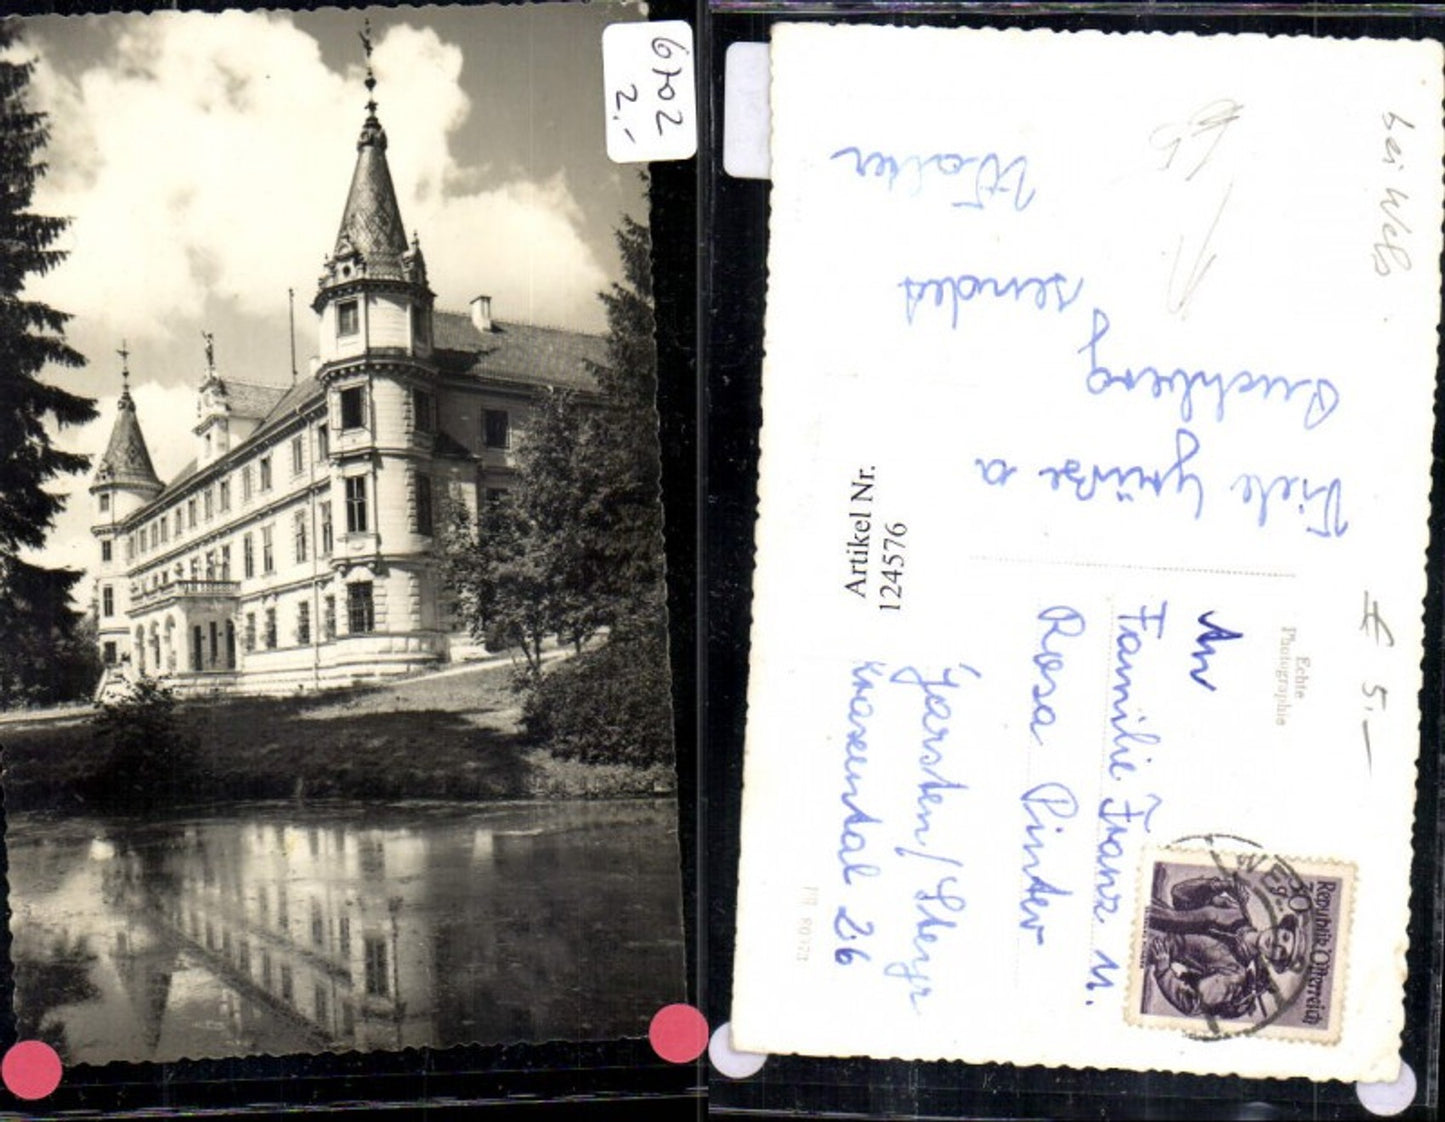 6702
2.-
bei Wels
Viele Grüße a
Puchberg
sendet
Walter
€ 5.—
Artikel Nr.
124576
Echte
Photographie
An
Familie Franz u.
Rosa Pinter
Garsten/Steyr
Kraxental 26
Republik Österreich